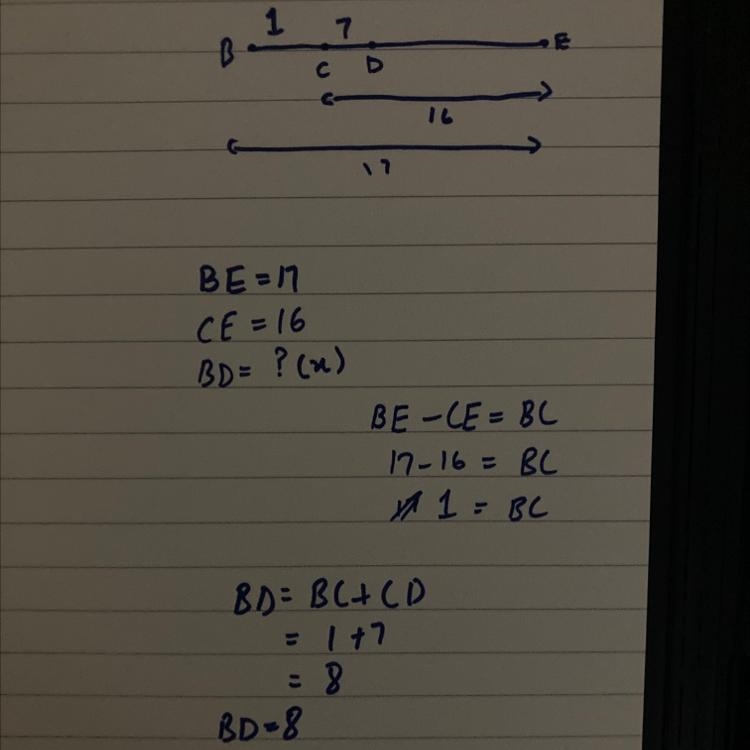 1 7
B C D E
16
17
BE = 17
CE = 16
BD = ? (x)
BE - CE = BC
17 - 16 = BC
1 = BC
BD = BC + CD
= 1 + 7
= 8
BD = 8